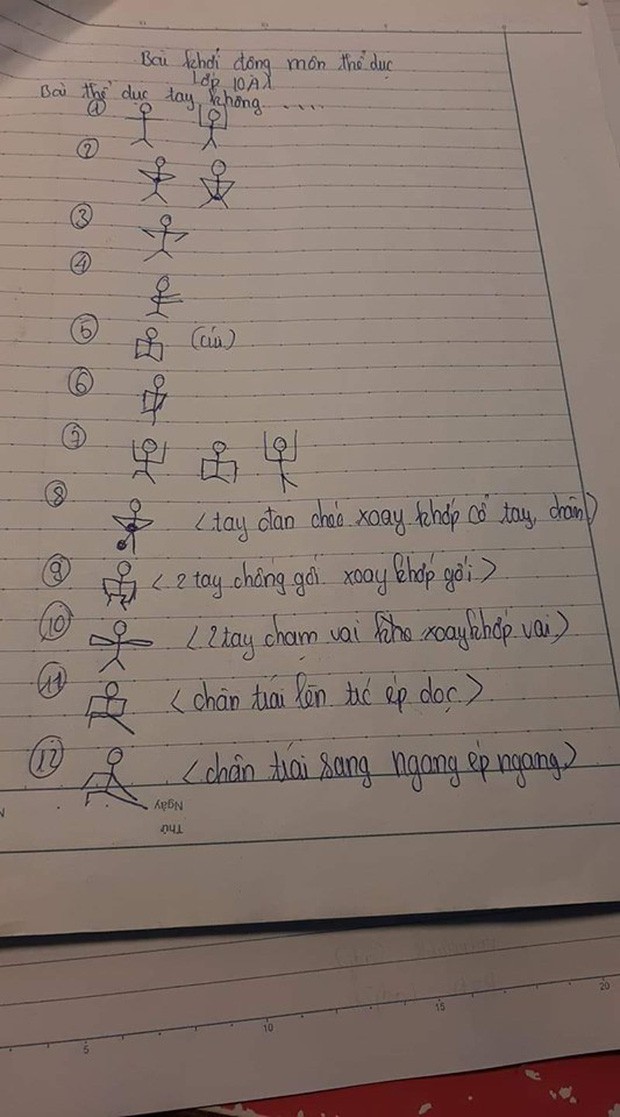 Bài khởi động môn thể dục
Lớp 10A1
Bài thể dục tay không ....
①
②
③
④
⑤ (cúi)
⑥
⑦
⑧ <tay đan chéo xoay khớp cổ tay, chân>
⑨ <2 tay chống gối xoay khớp gối>
⑩ <2 tay chạm vai xoay khớp vai>
⑪ <chân trái lên trước ép dọc>
⑫ <chân trái sang ngang ép ngang>
Ngày
Thứ
5 10 15 20